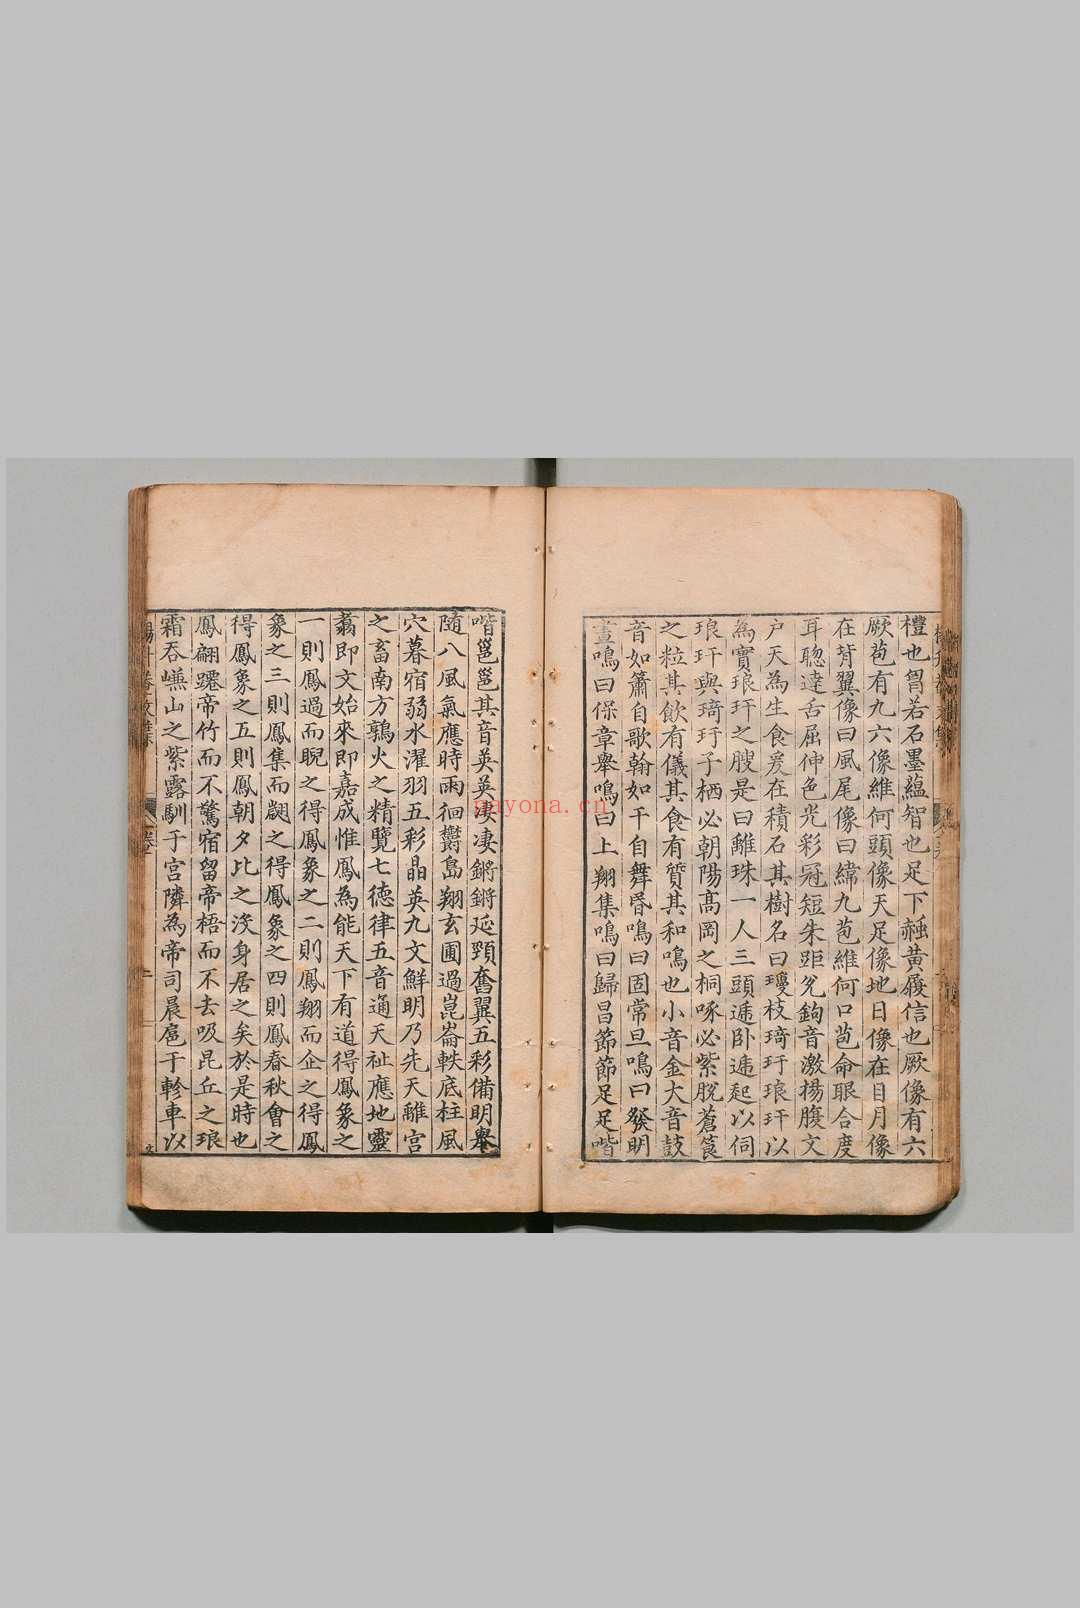 禮也胷若石墨蘊智也足下赩黄履信也厥像有六
厥苞有九六像維何頭像天足像地日像在目月像
在背翼像曰風尾像曰緯九苞維何口苞命眼合度
耳聰達舌屈伸色光彩冠短朱距兊鉤音激揚腹文
户天為生食爰在積石其樹名曰瓊枝琦玗琅玕以
為實琅玕之膄是曰離珠一人三頭遞卧遞起以伺
琅玕與琦玗子栖必朝陽高岡之桐啄必紫脫蒼筤
之粒其飲有儀其食有質其和鳴也小音金大音鼓
音如簫自歌翰如干自舞昏鳴曰固常旦鳴曰發明
晝鳴曰保章舉鳴曰上翔集鳴曰歸昌節節足足喈
喈邕邕其音英英淒淒鏘鏘延頸奮翼五彩備明舉
隨八風氣應時雨徊欝島翔玄圃過崑崙軼底柱風
穴暮宿弱水濯羽五彩晶英九文鮮明乃先天離宮
之畜南方鶉火之精覽七德律五音通天祉應地靈
翥即文始來即嘉成惟鳳為能天下有道得鳳象之
一則鳳過而睨之得鳳象之二則鳳翔而企之得鳳
象之三則鳳集而翮之得鳳象之四則鳳春秋會之
得鳳象之五則鳳朝夕比之沒身居之矣於是時也
鳳翩躚帝竹而不驚宿留帝梧而不去吸昆丘之琅
霜吞嶫山之紫露馴于宮隣為帝司晨扈于軫車以
nayona.cn